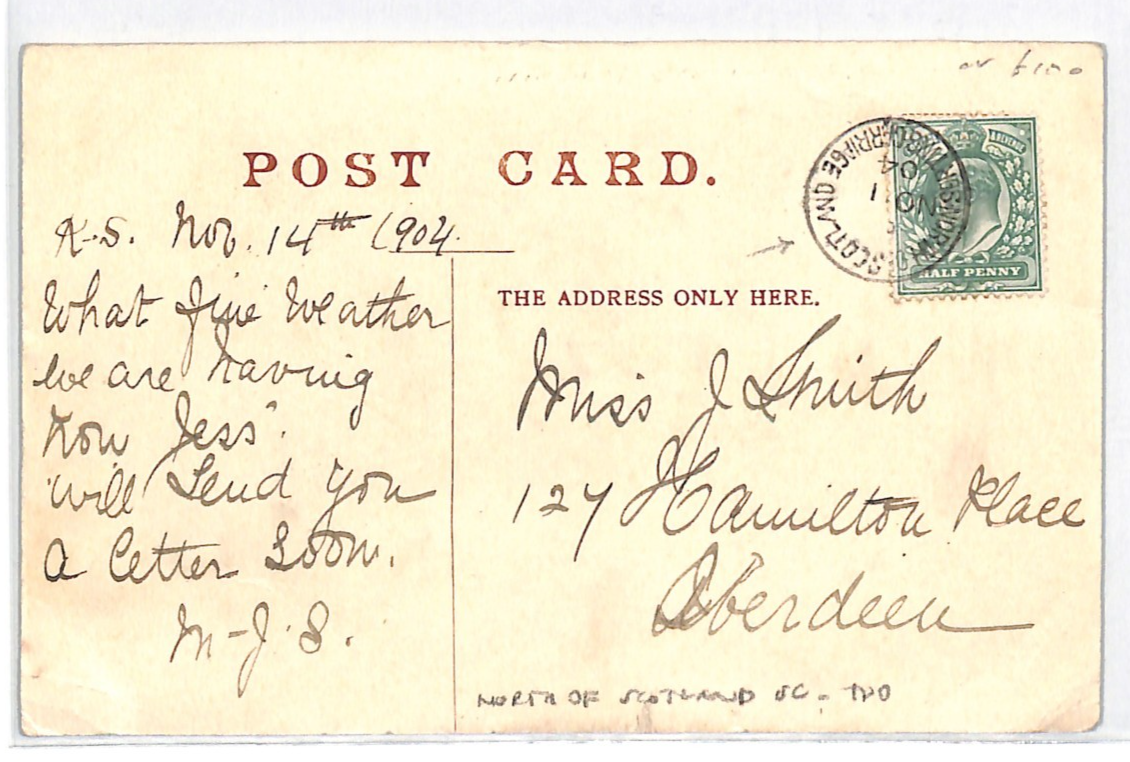 POST CARD.
K.S. Nov. 14th 1904.
What fine Weather
we are having
now Jess.
will Send you
a letter Soon.
M-J.S.
THE ADDRESS ONLY HERE.
Miss J Smith
127 Hamilton Place
Aberdeen
SCOTLAND
NO
04
REVENUE
HALF PENNY
NORTH OF SCOTLAND SC - TPO